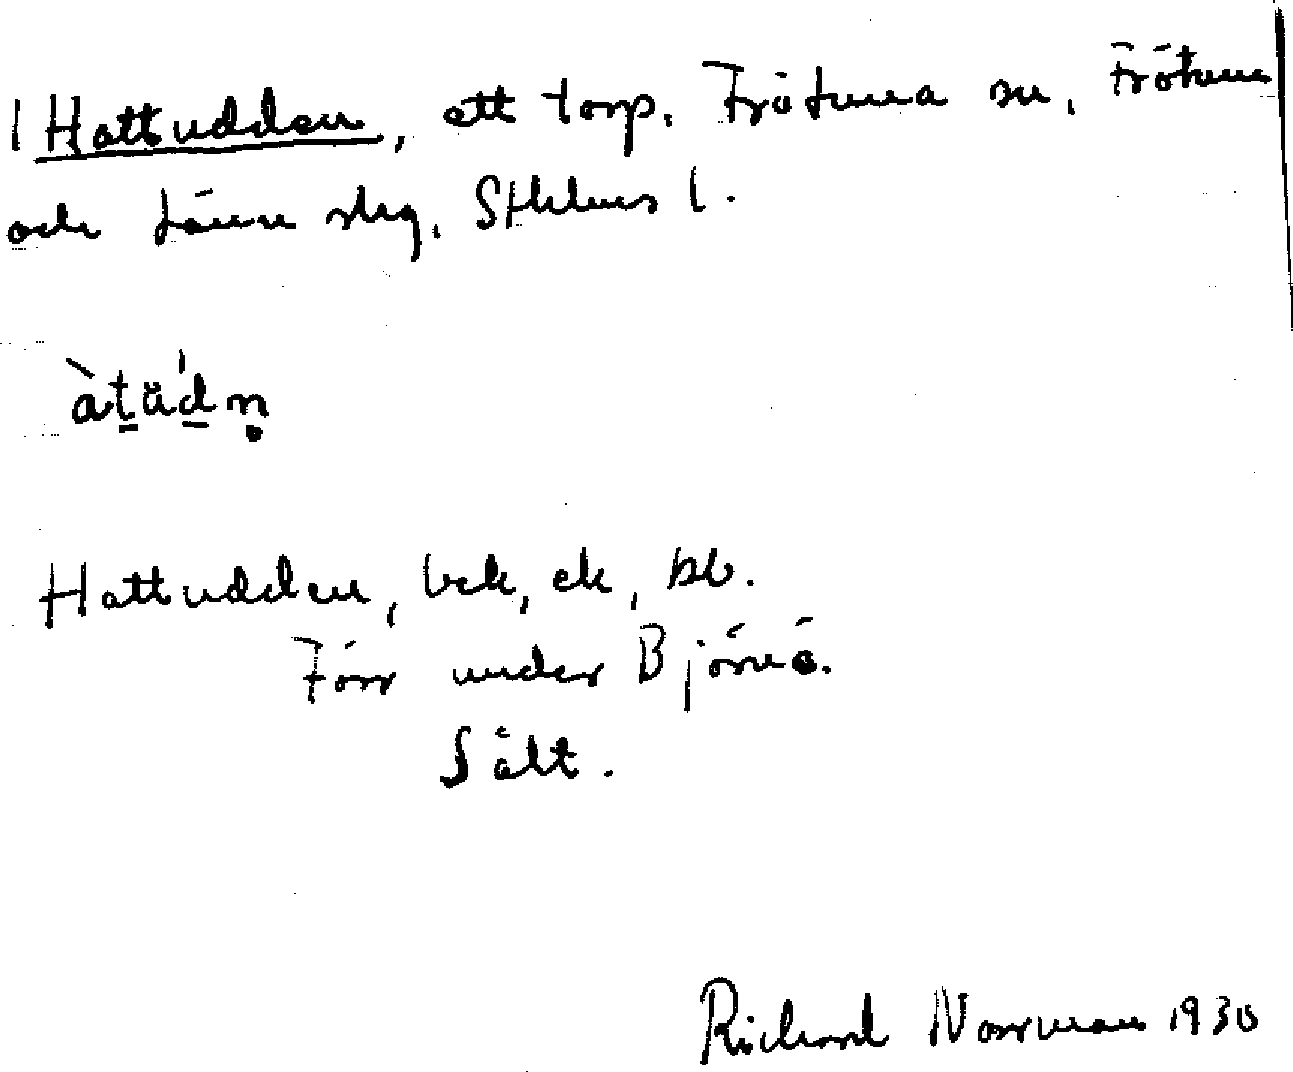 1 Hattudden, ett torp. Frötuna sn, Frötuna
och Länna slg, Sthlms l.
àtäd̍n̥
Hattudden, bek, ek, bl.
Förr under Björnö.
Sålt.
Richard Norrman 1930